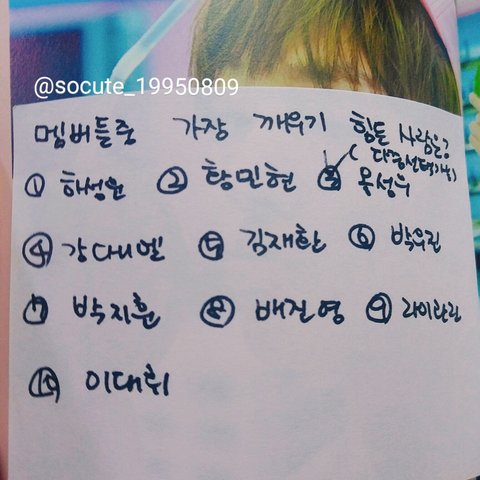 @socute_19950809
멤버들중 가장 깨우기 힘든 사람은?
(다중선택가능)
① 하성운 ② 황민현 ③ 옹성우
④ 강다니엘 ⑤ 김재환 ⑥ 박우진
⑦ 박지훈 ⑧ 배진영 ⑨ 라이관린
⑩ 이대휘